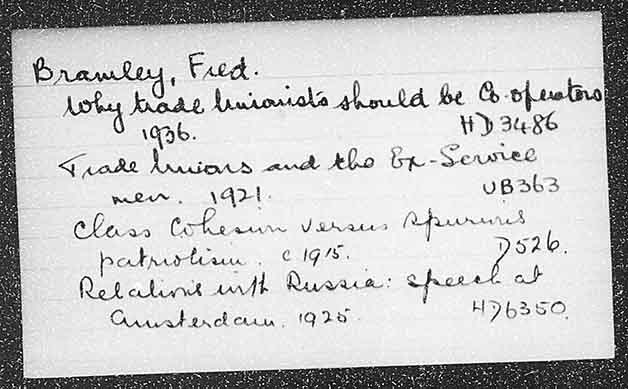 Bramley, Fred.
Why trade Unionists should be Co-operators
1936. HD3486
Trade Unions and the Ex-Service
men. 1921. UB363
Class Cohesion versus Spurious
patriotism. c 1915. D526.
Relations with Russia: speech at
Amsterdam. 1925. HD6350.